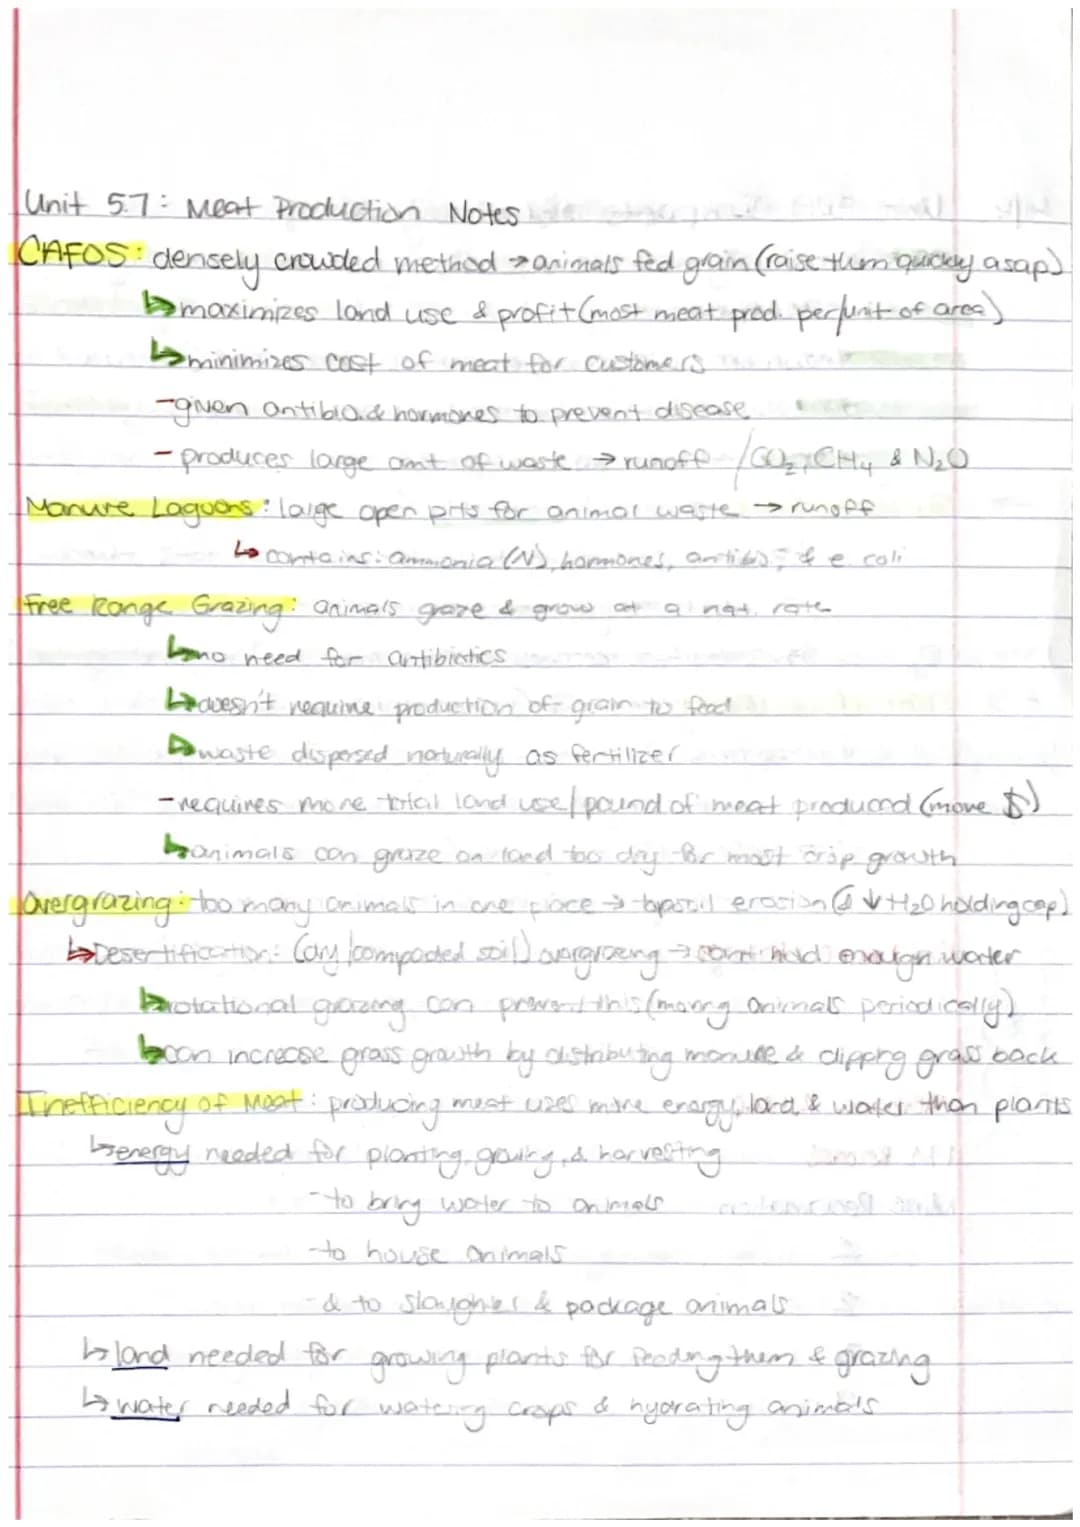 Unit 5.7: Meat Production Notes
CAFOS: densely crowded method → animals fed grain (raise them quickly asap)
↳ maximizes land use & profit (most meat prod. per/unit of area)
↳ minimizes cost of meat for customers
- given antibio. & hormones to prevent disease
- produces large amt of waste → runoff /CO₂, CH₄ & N₂O
Manure Lagoons: large open pits for animal waste → runoff
↳ contains: ammonia (N), hormones, antibio, & e. coli
Free Range Grazing: animals graze & grow at a nat. rate
↳ no need for antibiotics
↳ doesn't require production of grain to feed
↳ waste dispersed naturally as fertilizer
- requires more total land use/pound of meat produced (more $)
↳ animals can graze on land too dry for most crop growth
Overgrazing: too many animals in one place → topsoil erosion (& ↓ H₂O holding cap)
↳ Desertification: (dry/compacted soil) overgrazing → can't hold enough water
↳ rotational grazing can prevent this (moving animals periodically)
↳ can increase grass growth by distributing manure & clipping grass back
Inefficiency of Meat: producing meat uses more energy, land, & water than plants
↳ energy needed for planting, growing, & harvesting
- to bring water to animals
- to house animals
- & to slaughter & package animals
↳ land needed for growing plants for feeding them & grazing
↳ water needed for watering crops & hydrating animals